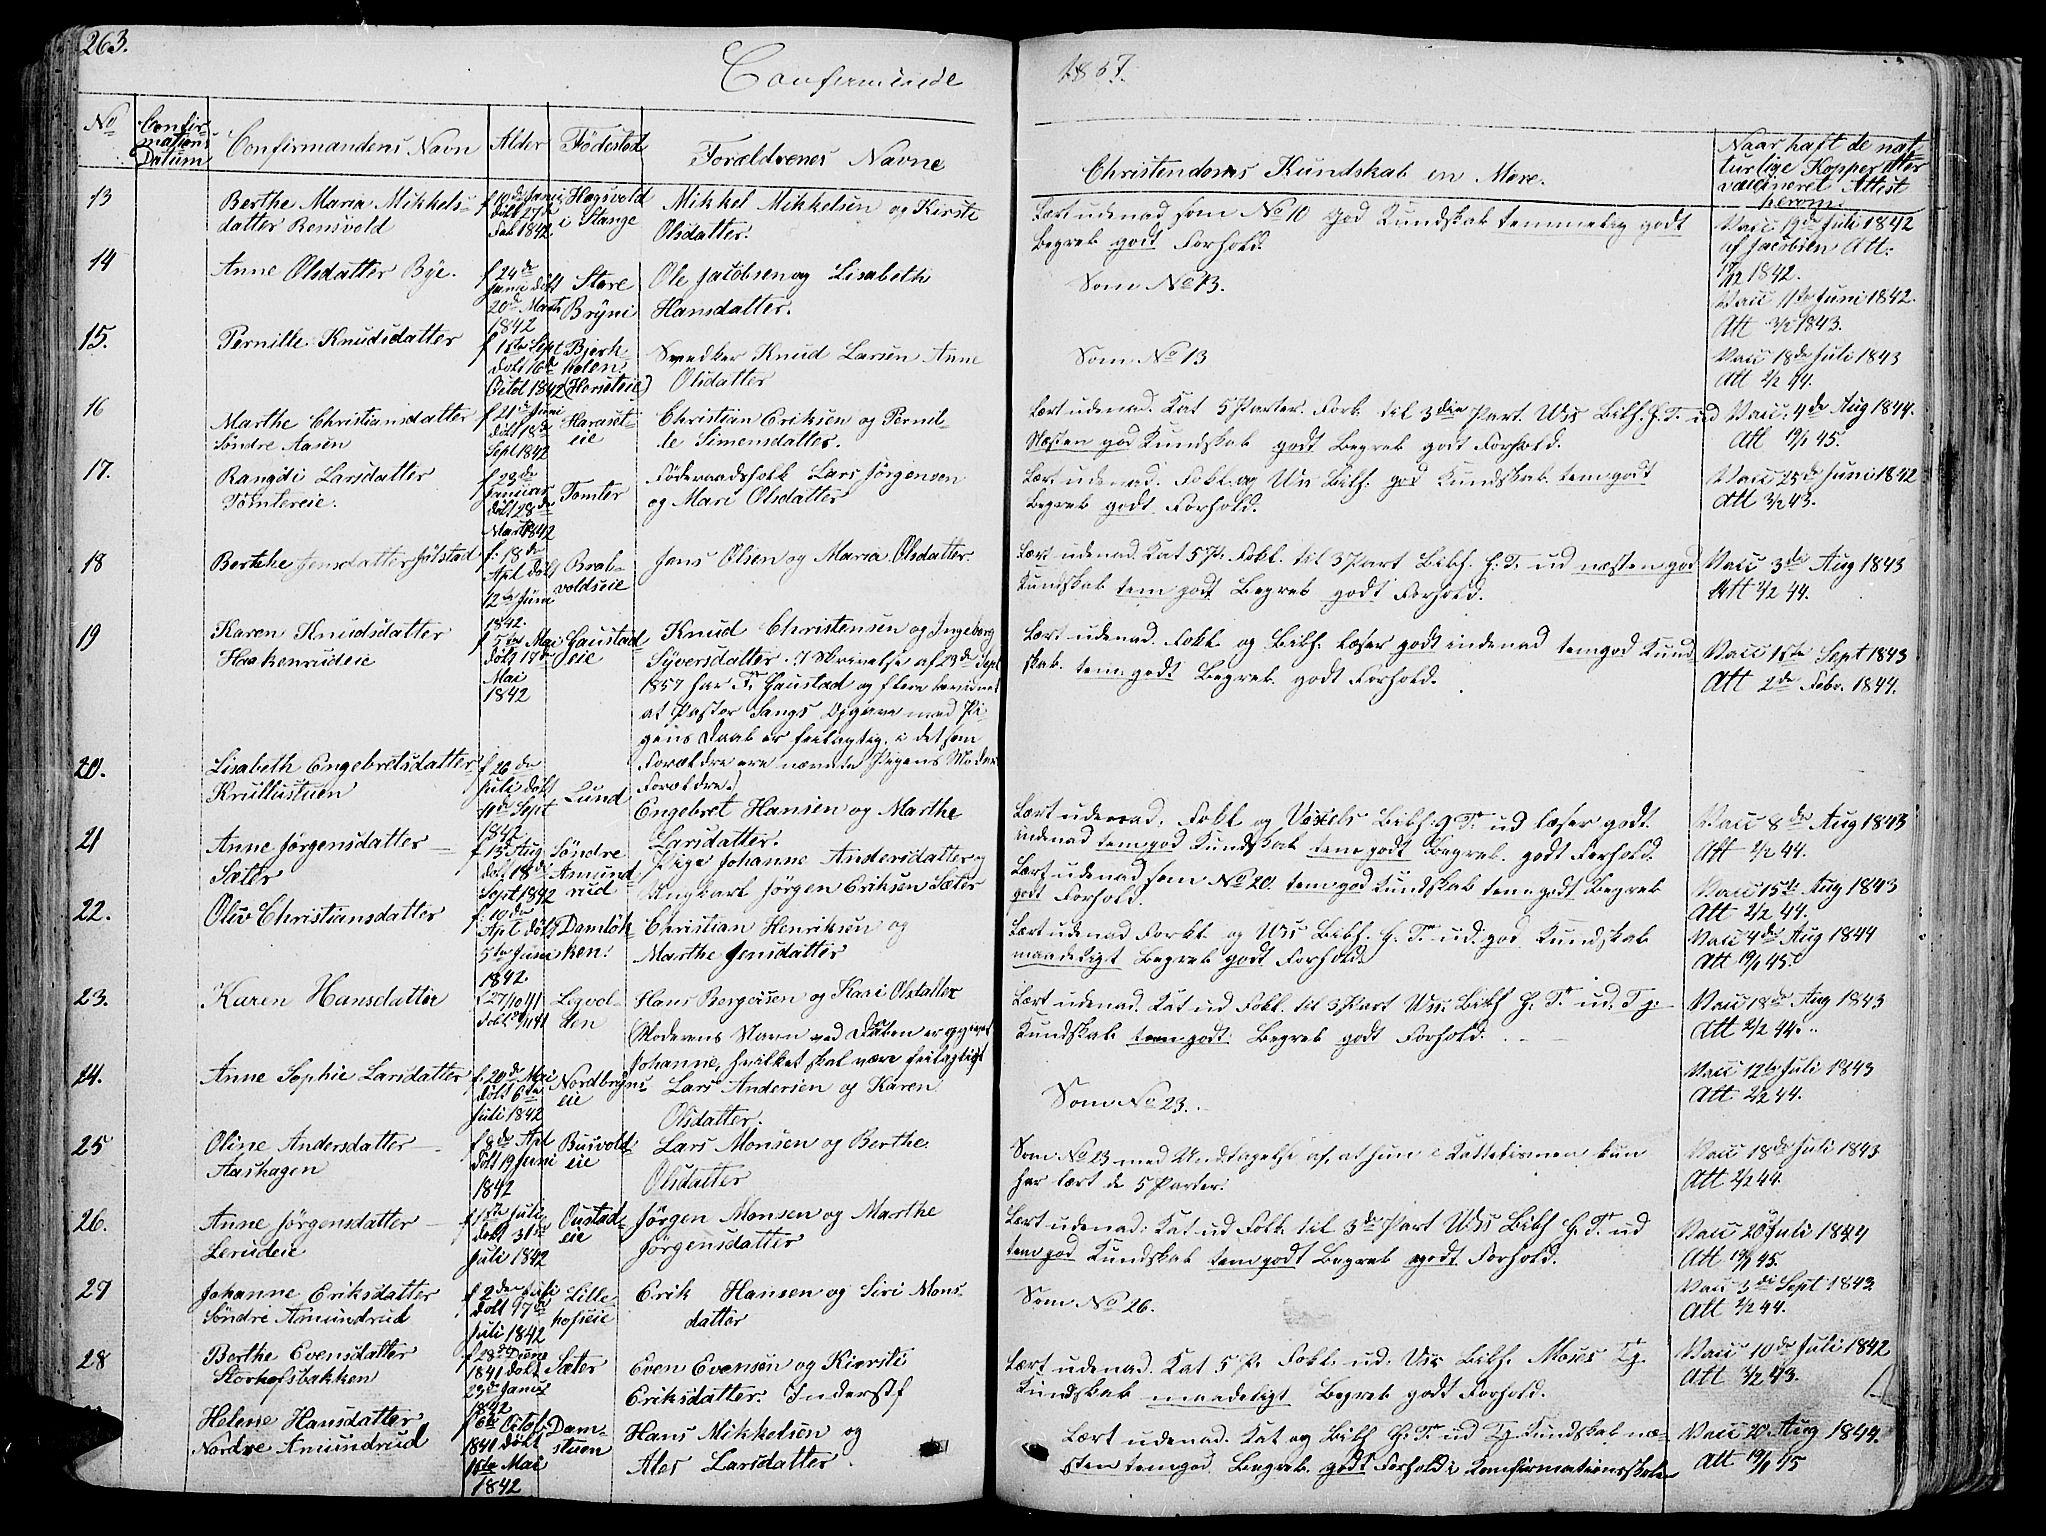 263.
Confirmerede
1857.
No
Confir-
mations
Datum
Confirmandens Navn
Alder
Födested
Forældrenes Navne
Christendoms Kundskab en Mere.
Naar haft de nat-
turlige Kopper eller
vaccineret Attest
herom.
13
Berthe Maria Mikkels-
datter Rensvold
f 10de Janu
döbt 27de
Feb 1842.
Hagsvold
i Stange
Mikkel Mikkelsen og Kirsti
Olsdatter.
Lært udenad som No 10 god Kundskab temmelig godt
Begreb godt Forhold.
Vacc 19de Juli 1842
af Jacobsen Att:
1842.
14
Anne Olsdatter Bye.
f 24de
Janu döbt
20de Marts
1842
Store
Bryni
Ole Jacobsen og Lisabeth
Hansdatter.
Som No 13.
Vacc 11te Juni 1842.
Att 3/2 1843.
15.
Pernille Knudsdatter
f 1ste Sept
döbt 16de
Octol 1842
Bjerk
holen
(Hersteie)
Svedker Knud Larsen Anne
Olsdatter
Som No 13
Vacc 18de Juli 1843
Att 2/2 44.
16
Marthe Christiansdatter
Söndre Aasen
f 21de Juni
döbt 18de
Sept 1842
Haraset-
eie
Christian Eriksen og Pernil-
le Simensdatter.
Lært udenad. Kat 5 Parter. Fork. til 3die Part. Uss Bibh. H. T. ud
Næsten god Kundskab godt Begreb godt Forhold.
Vacc. 4de Aug 1844.
Att 19/1 45.
17.
Rangdi Larsdatter
Tomtereie.
f 23de
Januar
döbt 28de
Marts 1842
Tomter
Föderaadsfolk Lars Jörgensen
og Mari Olsdatter
Lært udenad. Fokl. og Uss Bibh. god Kundskab. tem godt
Begreb godt Forhold.
Vacc 25de Juni 1842
Att 3/2 43.
18
Berthe Jensdatter Jölstad
f: 18de
Apl döbt
12te Juni
1842.
Brob-
voldseie
Jens Olsen og Maria Olsdatter
Lært udenad. Kat 5 P. Fokl. til 3 Part Bibh. H. T. ud næsten god
Kundskab tem godt Begreb godt Forhold.
Vacc 3die Aug 1843
Att 2/2 44.
19
Karen Knudsdatter
Haakenrudeie
f 5te Mai
döbt 17de
Mai
1842
Gaustad
eie
Knud Christensen og Ingeborg
Syversdatter. (I Skrivelse af 23de Sept
1857 har F. Gaustad og flere bevidnet
at Pastor Langs Opgave med Pi-
gens Daab er feilagtig, i det som
Forældre ere nævnte Pigens Moder
Forældre.)
Lært udenad. Fokl. og Bibh. læser godt indenad temgod Kund-
skab. tem godt Begreb godt Forhold.
Vacc 15te Sept 1843
Att 2de Febr. 1844.
20.
Lisabeth Engebretsdatter
Krullustuen
f 26de
Juli döbt
11te Sept
1842
Lund
Engebret Hansen og Marthe
Larsdatter.
Lært udenad. Fokl. og Uxxels Bibh. H. T. ud læser godt
indenad temgod Kundskab temgodt Begreb. godt Forhold.
Vacc 8de Aug 1843
Att 2/2 44.
21
Anne Jörgensdatter
Sæter
f 13de Aug
döbt 18de
Sept 1842
Söndre
Amund-
rud
Pige Johanne Andersdatter og
Ungkarl Jörgen Eriksen Sæter
Lært udenad som No 20. temgod Kundskab temgodt Begreb
godt Forhold.
Vacc 15de Aug 1843
Att 2/2 44.
22.
Oliv Christiansdatter
f: 10de
Apl döbt
5te Juni
1842.
Damlök-
ken!
Christian Henriksen og
Marthe Jensdatter
Lært udenad Forkl. og Uss Bibh. H. T. ud. god Kundskab
maadeligt Begreb godt Forhold.
Vacc 4de Aug 1844
Att 19/1 45.
23.
Karen Hansdatter
f 27/10 41
döbt /11 41
Legvol-
den
Hans Borgersen og Kari Olsdatter
Moderens Navn ved Daaben er opgivet
Johanne, hvilket skal være feilagtigt
Lært udenad. Kat ud Fokl. til 3 Part Uss. Bibh H. T. ud. T g:
Kundskab temgodt Begreb godt Forhold.
Vacc 18de Aug 1843
Att 2/2 44.
24.
Anne Sophie Larsdatter
f. 20de Mai
döbt 6te
Juli 1842
Nordbryns-
eie
Lars Andersen og Karen
Olsdatter.
Som No 23.
Vacc 12te Juli 1843
Att 2/2 44.
25
Oline Andersdatter
Aashagen
f 8de Apl
döbt 19 Juni
1842
Busvold-
eie
Lars Monsen og Berthe
Olsdatter
Som No 23 med Undtagelse af, at hun i Kattekismen kun
har lært de 5 Parter.
Vacc 18de Juli 1843
Att 2/2 44.
26.
Anne Jörgensdatter
Lerudeie
f 1ste Juli
döbt 31te
Juli 1842
Oustad-
eie
Jörgen Monsen og Marthe
Jörgensdatter
Lært udenad. Kat ud Fokl. til 3die Part Uss Bibh H. T. ud
temgod Kundskab temgodt Begreb godt Forhold.
Vacc 20de Juli 1844
Att 19/1 45.
27
Johanne Eriksdatter
Söndre Amundrud
f 2den Juli
döbt 17de
Juli 1842
Lille-
hofseie
Erik Hansen og Siri Mons-
datter
Som No 26.
Vacc 3die Sept 1843
Att 2/2 44.
28
Berthe Evensdatter
Storhofsbakken
f 28de Decm
1841 döbt
23de Janur
1842
Sæter
Even Evensen og Kiersti
Eriksdatter. Inderstf
Lært udenad. Kat 5 P. Fokl. ud. Uss Bibh. Moses Tg.
Kundskab maadeligt Begreb godt Forhold.
Vacc 10de Juli 1842
Att 3/2 43.
Helene Hansdatter
Nordre Amundrud
f 6te Octob.
1841 döbt
15te Mai
1842
Dam-
stuen
Hans Mikkelsen og
Ales Larsdatter.
Lært udenad. Kat og Bibh H. T. ud Tg Kundskab næ-
sten temgod Begreb godt Forhold i Konfirmationsskole
Vacc 20 Aug 1844.
Att 19/1 45